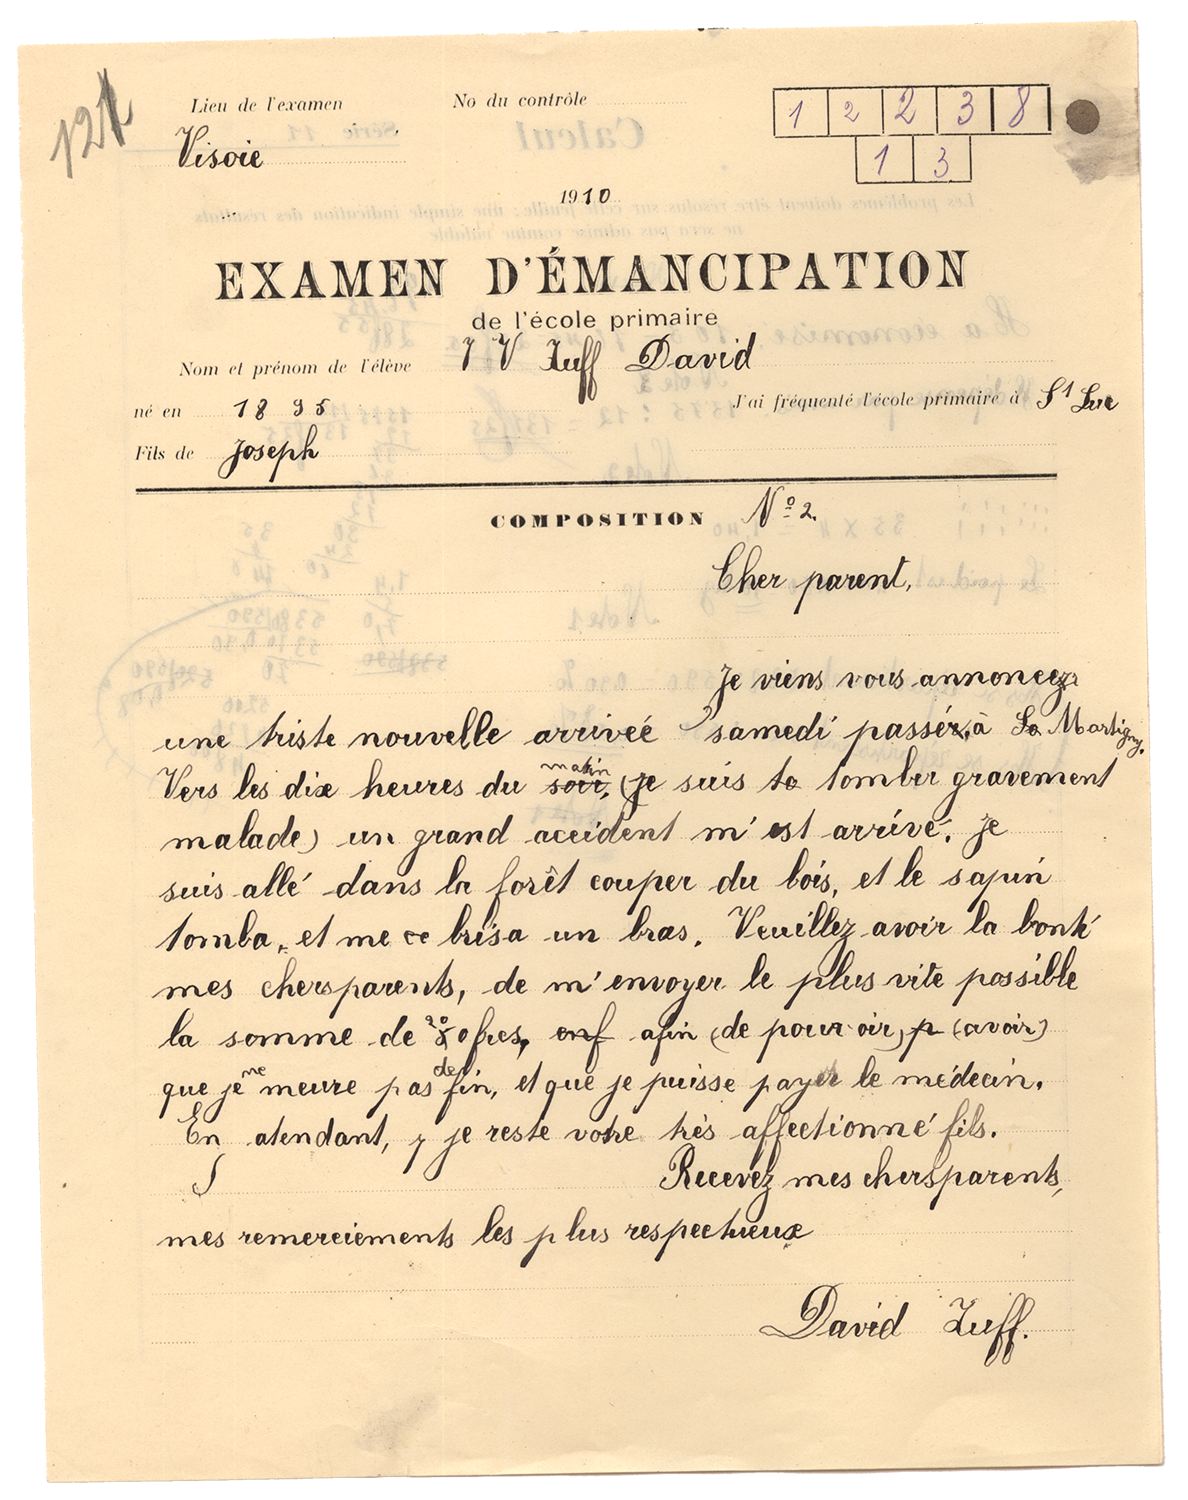 121
Lieu de l'examen
No du contrôle
1 2 2 3 8
Visoie
1 3
1910
EXAMEN D'ÉMANCIPATION
de l'école primaire
Nom et prénom de l'élève Zuff David
né en 1895 J'ai fréquenté l'école primaire à St Luc
Fils de Joseph
COMPOSITION No 2.
Cher parent,
Je viens vous annoncez
une triste nouvelle arrivéé samedi passé, à La Martigny.
Vers les dix heures du soir, matin (je suis to tomber gravement
malade) un grand accident m'est arrivé. je
suis allé dans la forêt couper du bois, et le sapin
tomba, et me ce brisa un bras. Veuillez avoir la bonté
mes chers parents, de m'envoyer le plus vite possible
la somme de frcs, enf afin (de pouvoir) p (avoir)
que je ne meure pas de fin, et que je puisse payer le médecin.
En atendant, je reste votre très affectionné fils.
Recevez mes chers parents,
mes remerciements les plus respectueux
David Zuff.